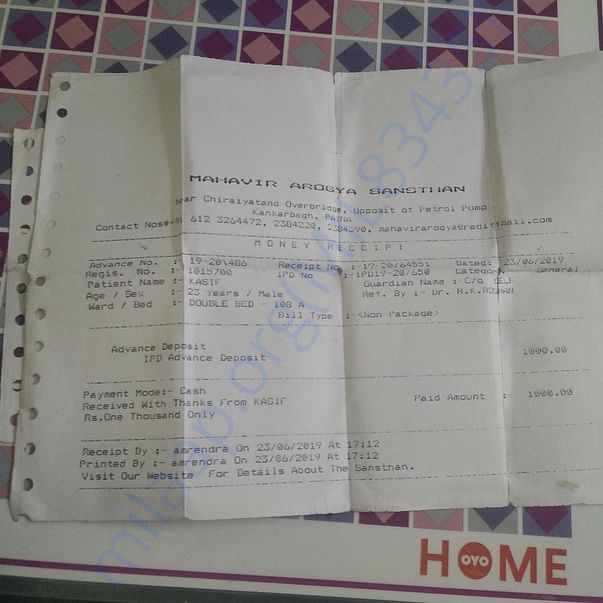 MAHAVIR AROGYA SANSTHAN
Near Chiraiyatand Overbridge, Opposit of Petrol Pump
Kankarbagh, PATNA
Contact Nos#+91 612 3264472, 2384220, 2384390, mahavirarogya@rediffmail.com
MONEY RECEIPT
Advance No. :- 19-20\486 Receipt No :-17-20/64551 Dated: 23/06/2019
Regis. No. :- 1015700 IPD No :-IPD19-20/650 Category. General
Patient Name :- KASIF Guardian Name : C/o SELF
Age / Sex :- 23 Years / Male Ref. By :- Dr. R.K.
Ward / Bed :- DOUBLE BED - 108 A
Bill Type : <Non Package>
Advance Deposit 1000.00
IPD Advance Deposit
Payment Mode:- Cash Paid Amount : 1000.00
Received With Thanks From KASIF
Rs.One Thousand Only
Receipt By :- amrendra On 23/06/2019 At 17:12
Printed By :- amrendra On 23/06/2019 At 17:12
Visit Our Website For Details About The Sansthan.
HOME
OYO
milaap.org
8343